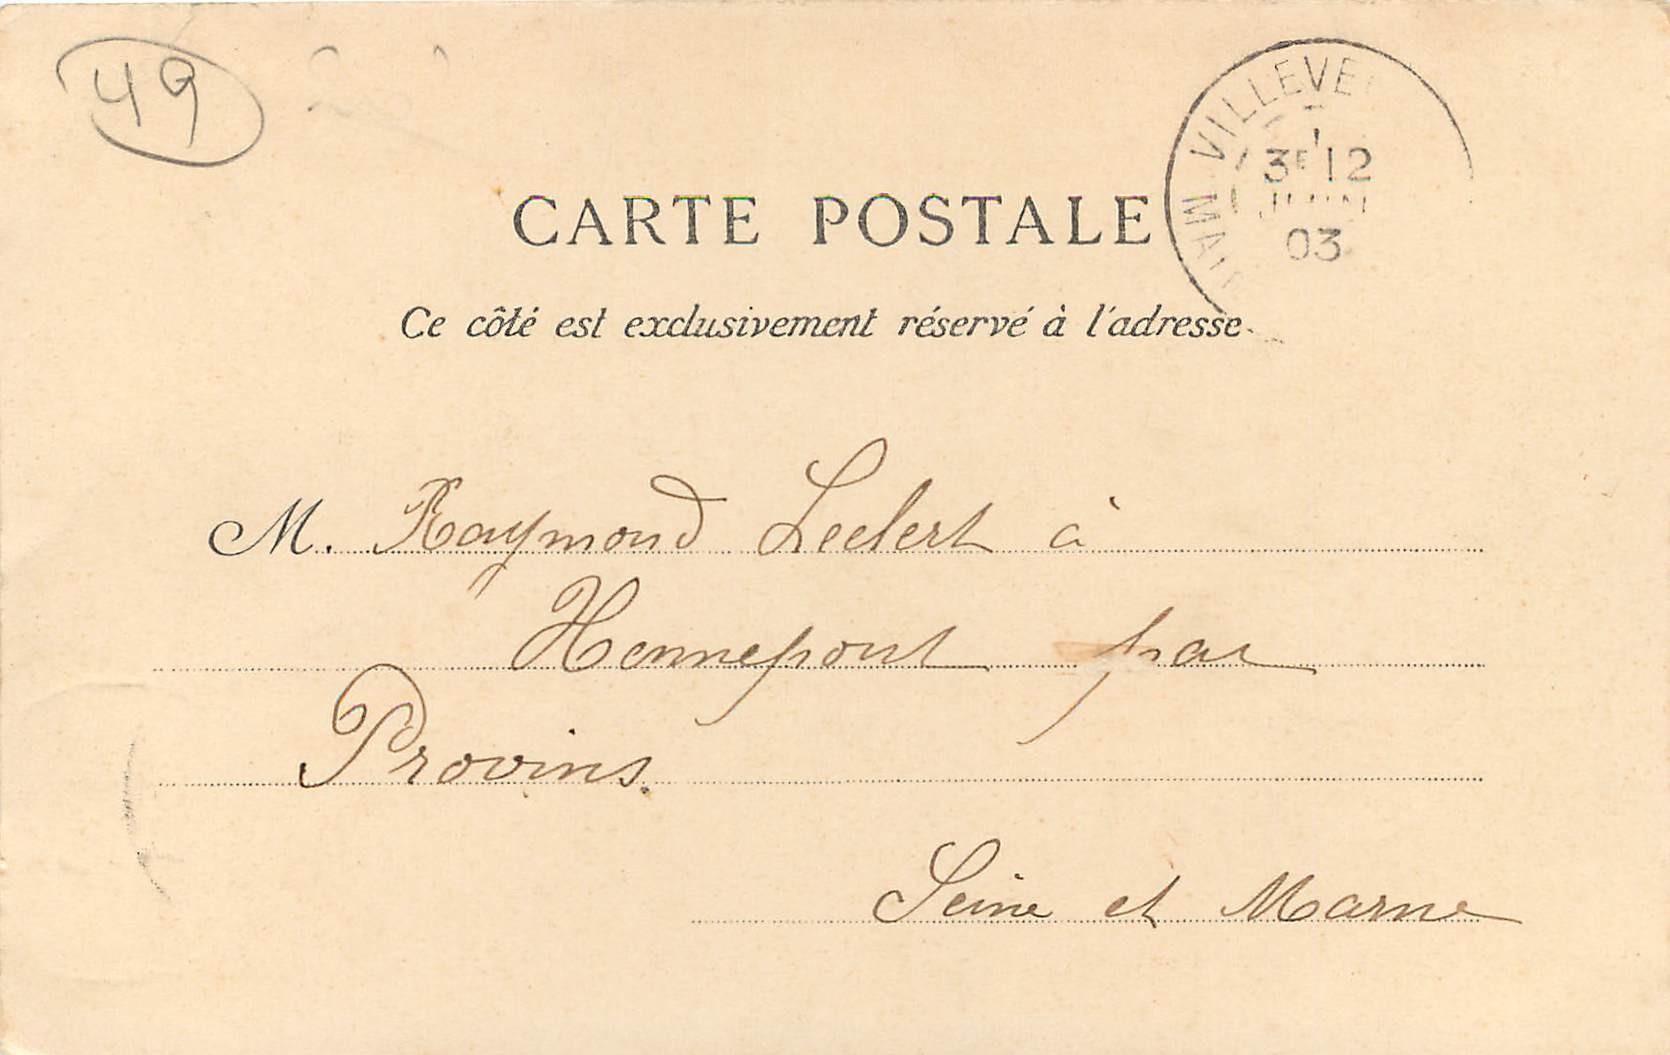 49
VILLEVE
MAI
3E 12
JUIN
03
CARTE POSTALE
Ce côté est exclusivement réservé à l'adresse
M. Raymond Leclert à
Hennepont par
Provins.
Seine et Marne